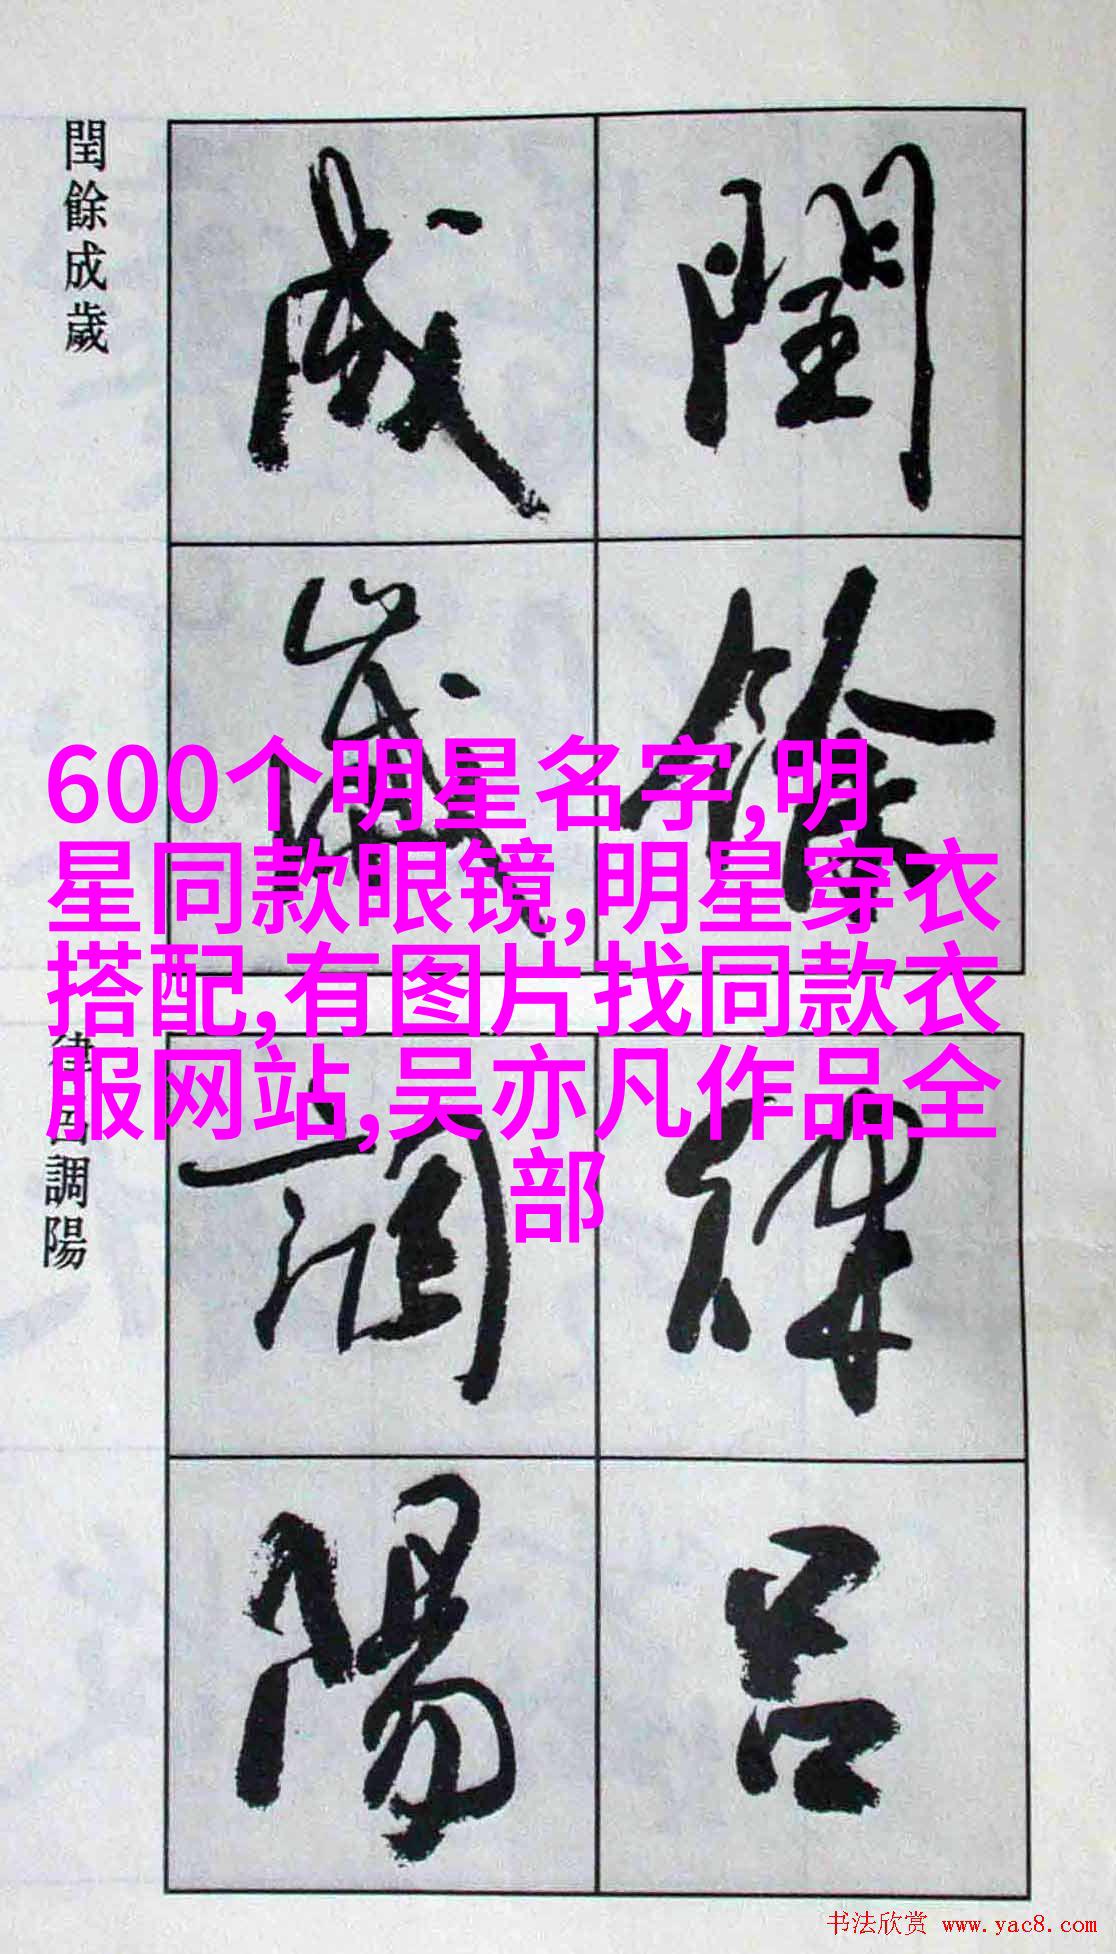 閏餘成歲
閏餘
成歲
600个明星名字,明
星同款眼镜,明星穿衣
搭配,有图片找同款衣
服网站,吴亦凡作品全
部
律呂調陽
律呂
調陽
书法欣赏 www.yac8.com